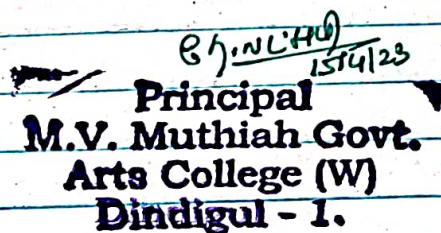 15/4/23
Principal
M.V. Muthiah Govt.
Arts College (W)
Dindigul - 1.